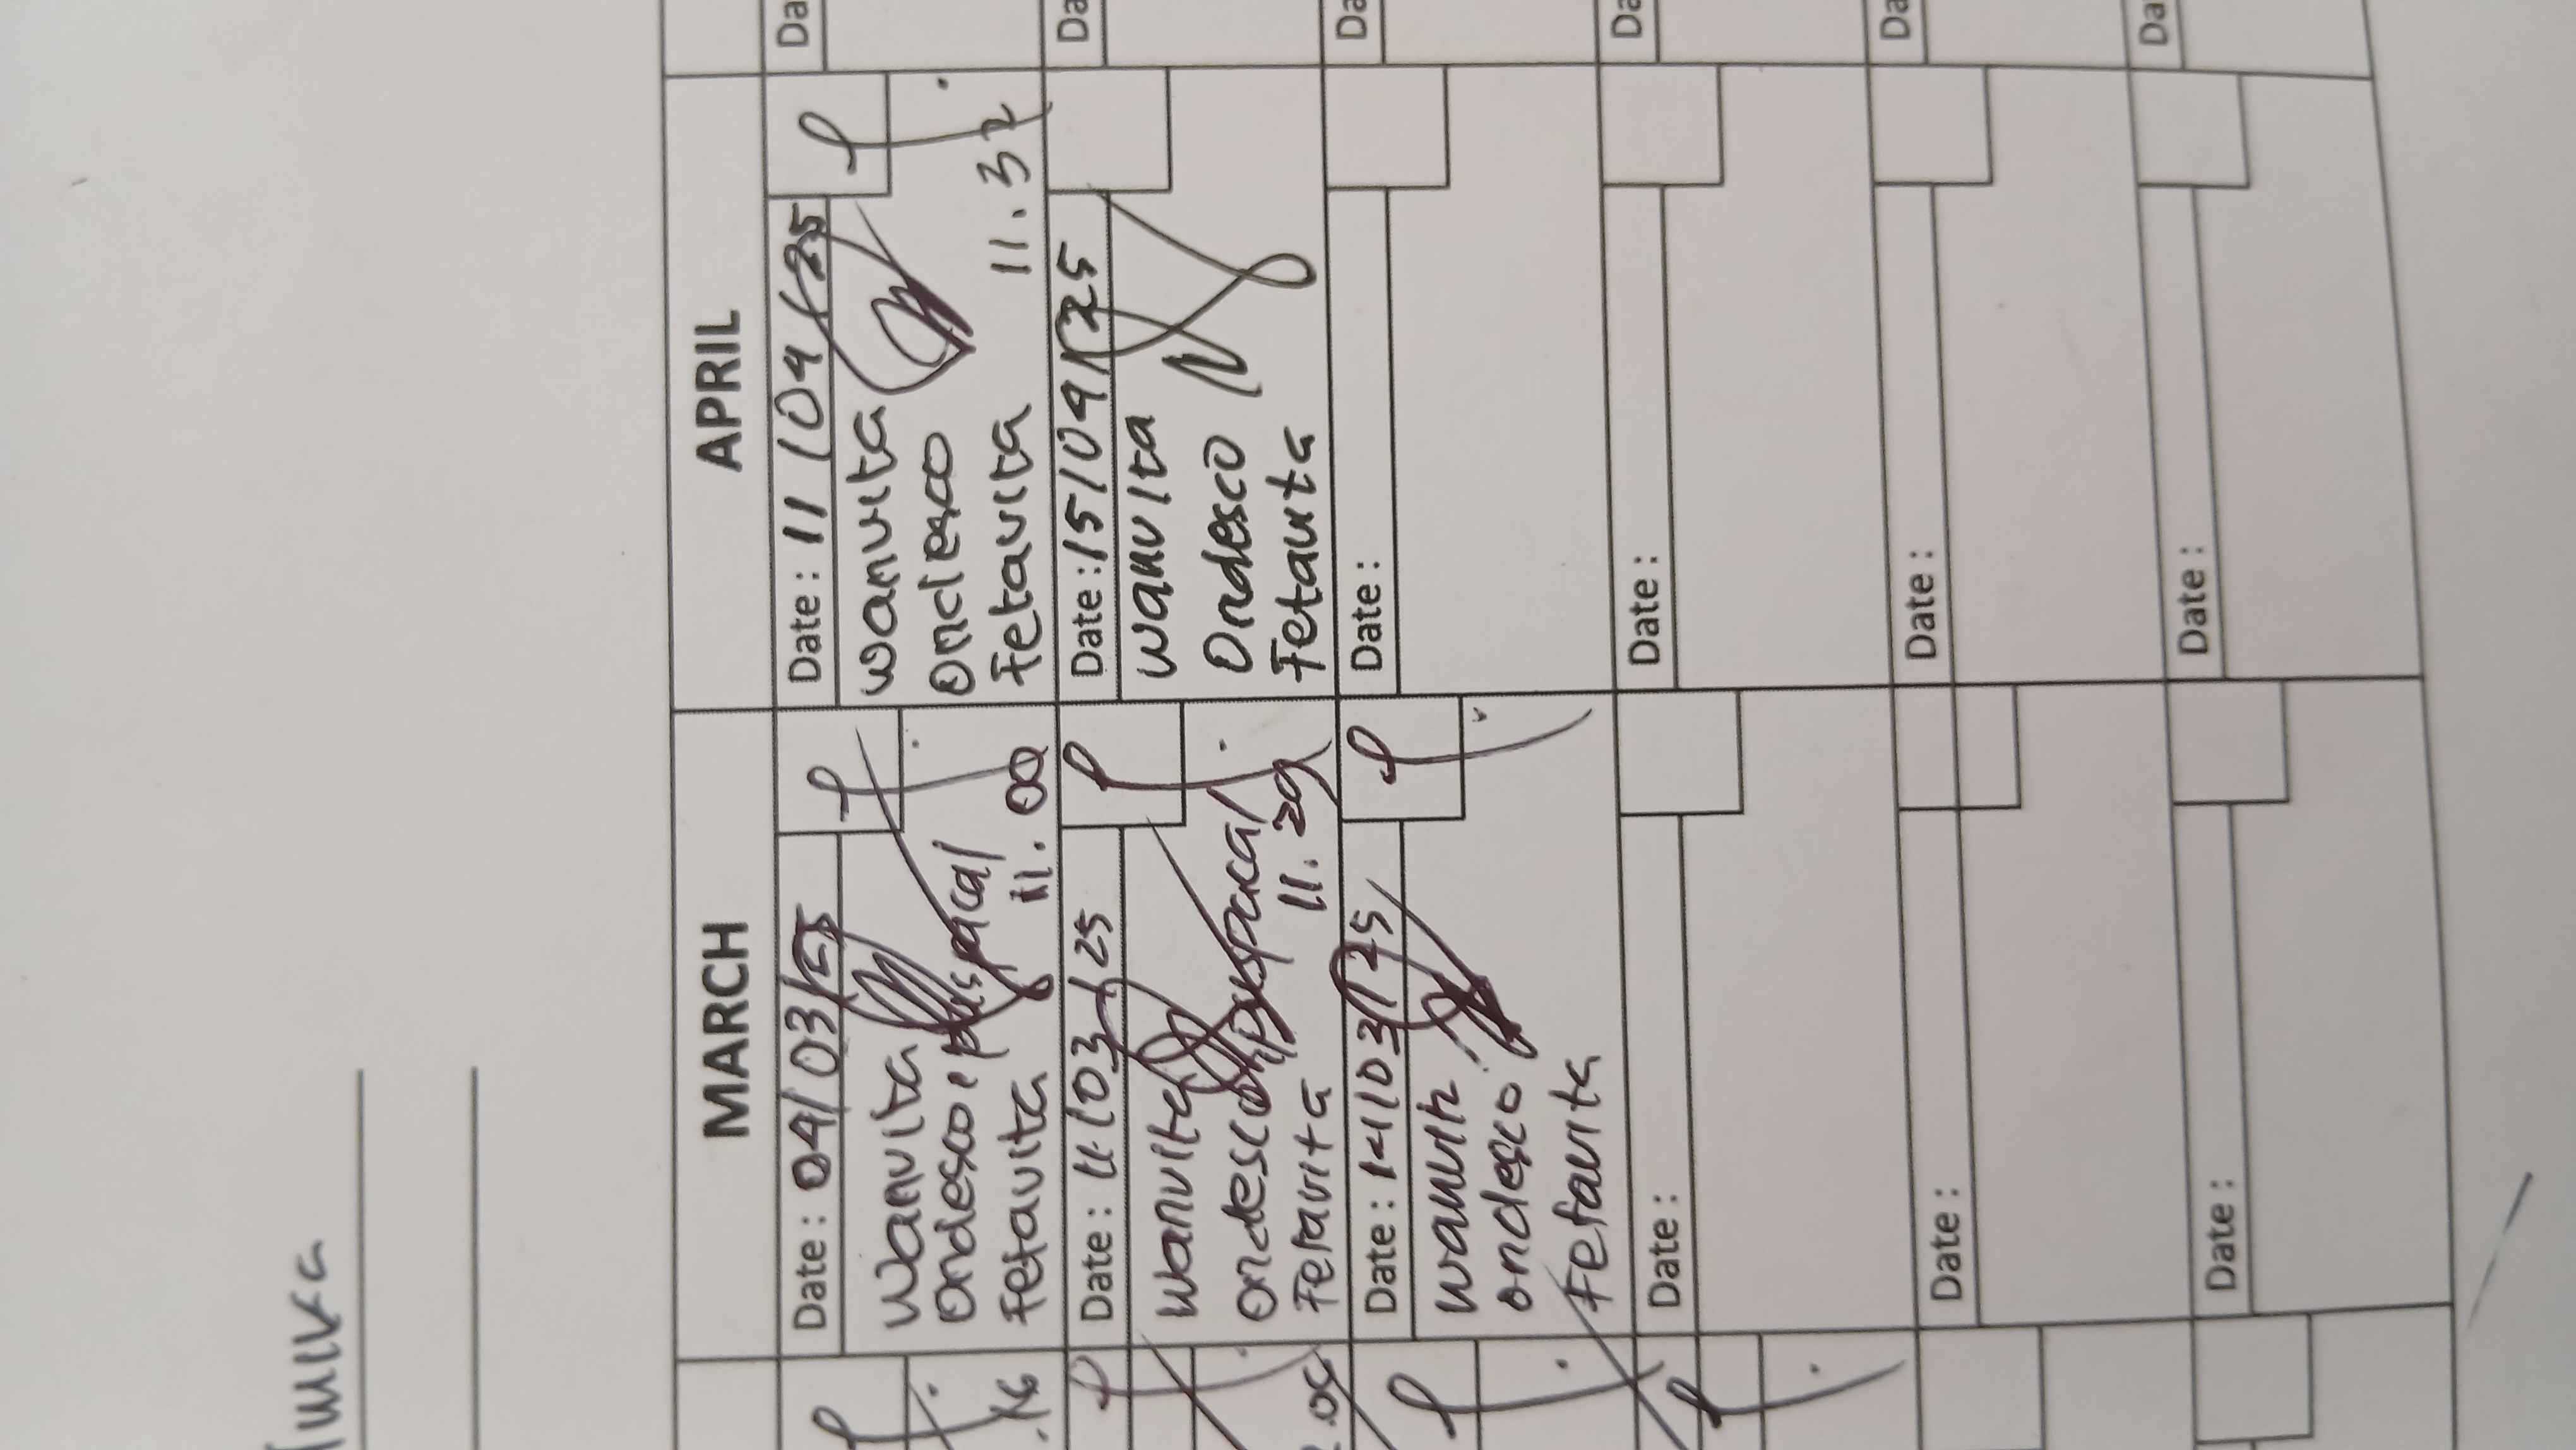 MARCH
Date : 04/03/25
wanvita
ondesco puspacal
Fetavita 11.00
Date : 11/03/25
wanvita
ondesco puspacal
Fetavita 11.29
Date : 14/03/25
ondesco
Fetavita
Date :
Date :
Date :
APRIL
Date : 11/04/25
wanvita
ondesco
Fetavita 11.32
Date : 15/04/25
wanvita
Ondesco
Fetavita
Date :
Date :
Date :
Date :
Da
Da
Da
Da
Da
Da